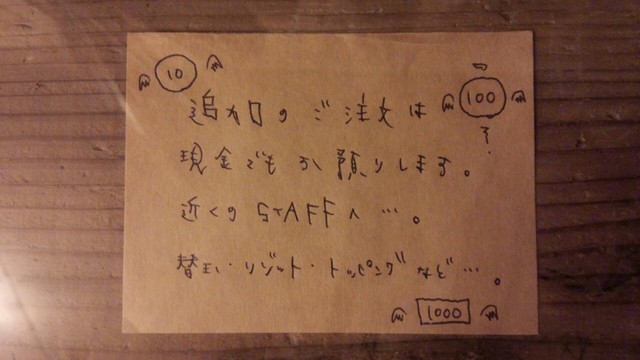 10
100
追加のご注文は
現金でもお預りします。
近くのSTAFFへ…。
替玉・リゾット・トッピングなど…。
1000